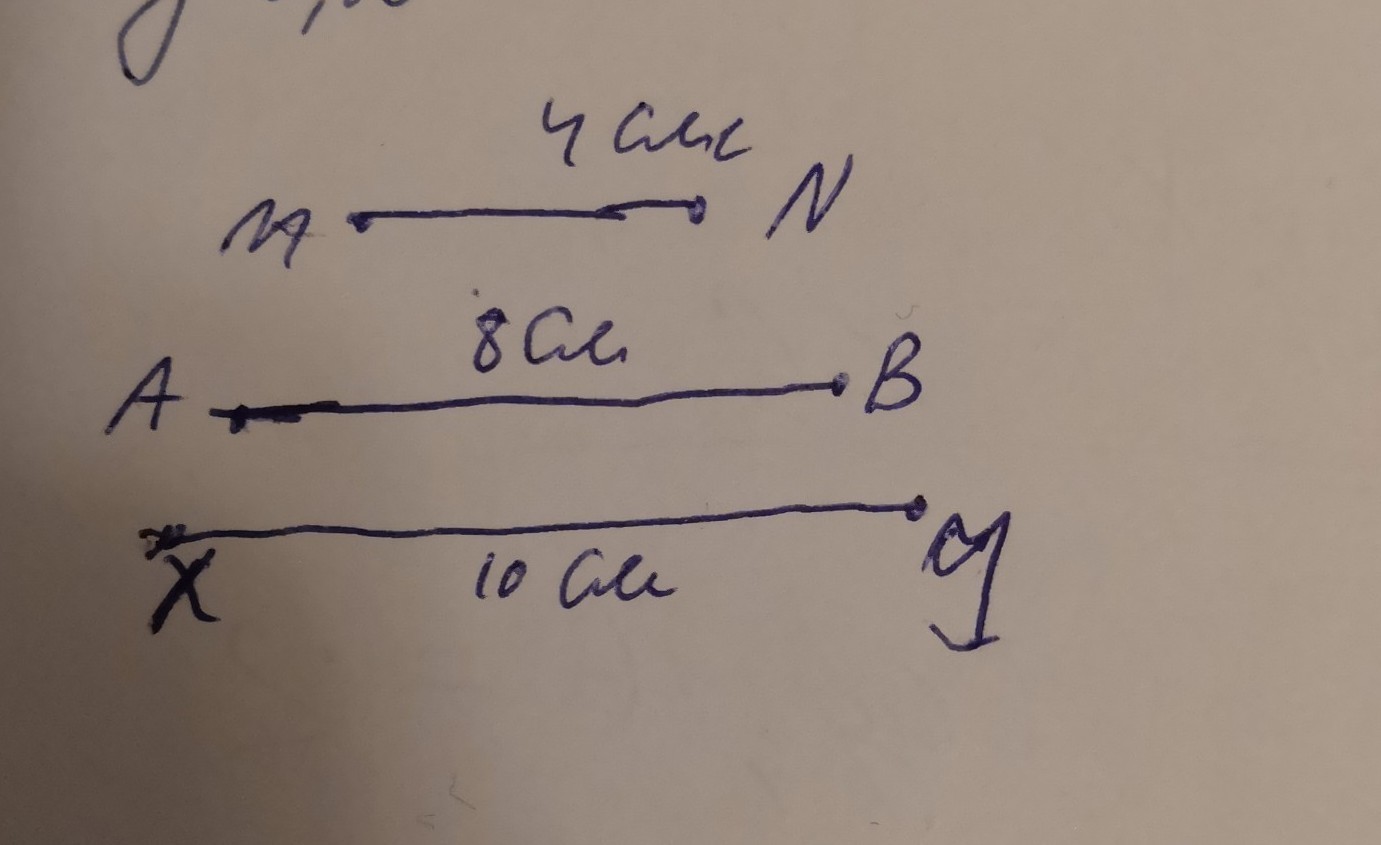 4 см
M N
8 см
A B
X 10 см У